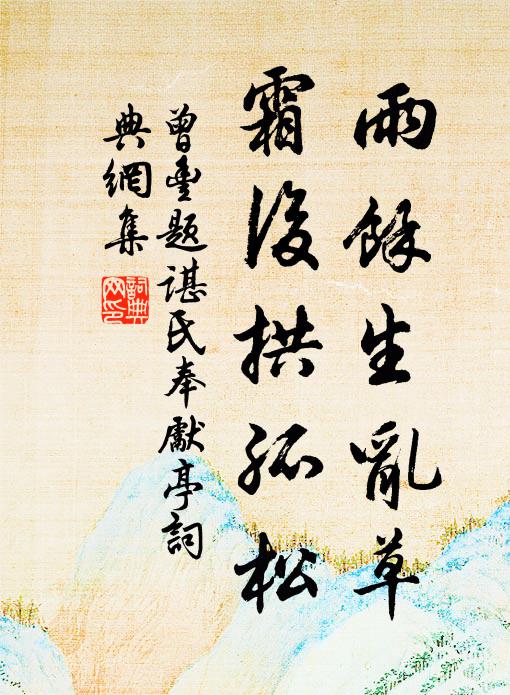 雨餘生亂草
霜後拱孤松
曾豐題諶氏奉獻亭詞
典網集
詞典
网印